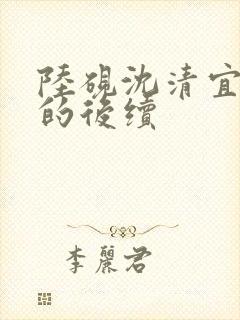 陸硯沈清宜
的後續
李麗君